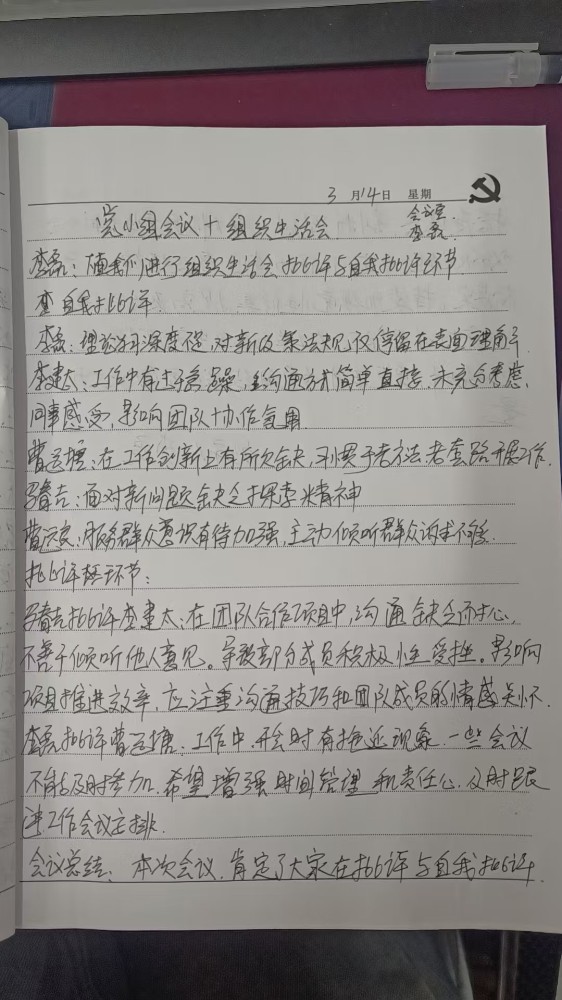 3月14日 星期
会议室.
李磊.
党小组会议+组织生活会
李磊:随我们进行组织生活会批评与自我批评环节
查自我批评:
李磊:理论学习深度不足,对新政策法规仅停留在表面理解
李建太:工作中有过于急躁,沟通方式简单直接,未充分考虑
同事感受,影响团队协作氛围
曹运塘:在工作创新上有所欠缺,习惯于老方法老套路开展工作.
马春吉:面对新问题缺乏探索精神
曹运良:服务群众意识有待加强,主动倾听群众诉求不够.
批评环节:
马春吉批评李建太:在团队合作项目中,沟通缺乏耐心,
不善于倾听他人意见。导致部分成员积极性受挫。影响
项目推进效率,应注重沟通技巧和团队成员的情感关怀.
李磊批评曹运塘:工作中,开会时有拖延现象.一些会议
不能及时参加.希望增强时间管理和责任心.及时跟
进工作会议安排.
会议总结:本次会议.肯定了大家在批评与自我批评